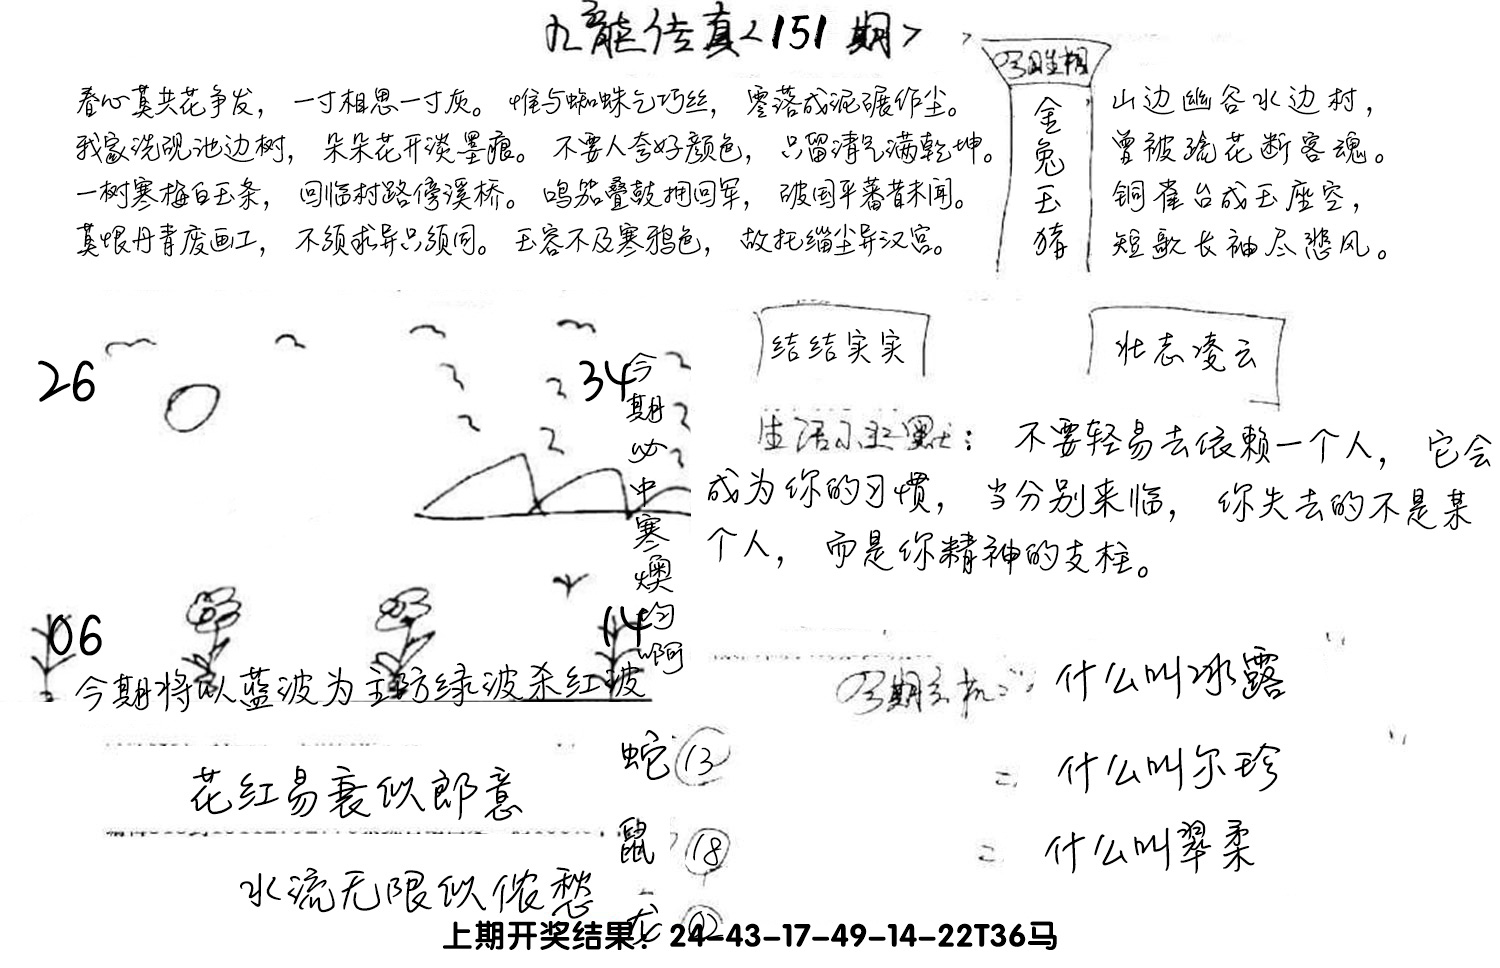 九龙传真<151期>
春心莫共花争发，一寸相思一寸灰。惟与蜘蛛乞巧丝，零落成泥碾作尘。
我家洗砚池边树，朵朵花开淡墨痕。不要人夸好颜色，只留清气满乾坤。
一树寒梅白玉条，回临村路傍溪桥。鸣笳叠鼓拥回军，破国平蕃昔未闻。
莫恨丹青废画工，不须求异只须同。玉容不及寒鸦色，故托缁尘异汉宫。
金兔玉猪
山边幽谷水边村，
曾被疏花断客魂。
铜雀台成玉座空，
短歌长袖尽悲风。
26
34
今期必中寒燠均啊
06
14
今期将以蓝波为主防绿波杀红波
结结实实
壮志凌云
生活小幽默：不要轻易去依赖一个人，它会
成为你的习惯，当分别来临，你失去的不是某
个人，而是你精神的支柱。
今期玄机
什么叫冰露
什么叫尔珍
什么叫翠柔
花红易衰似郎意
水流无限似侬愁
蛇 13
鼠 18
龙 02
上期开奖结果：24-43-17-49-14-22T36马